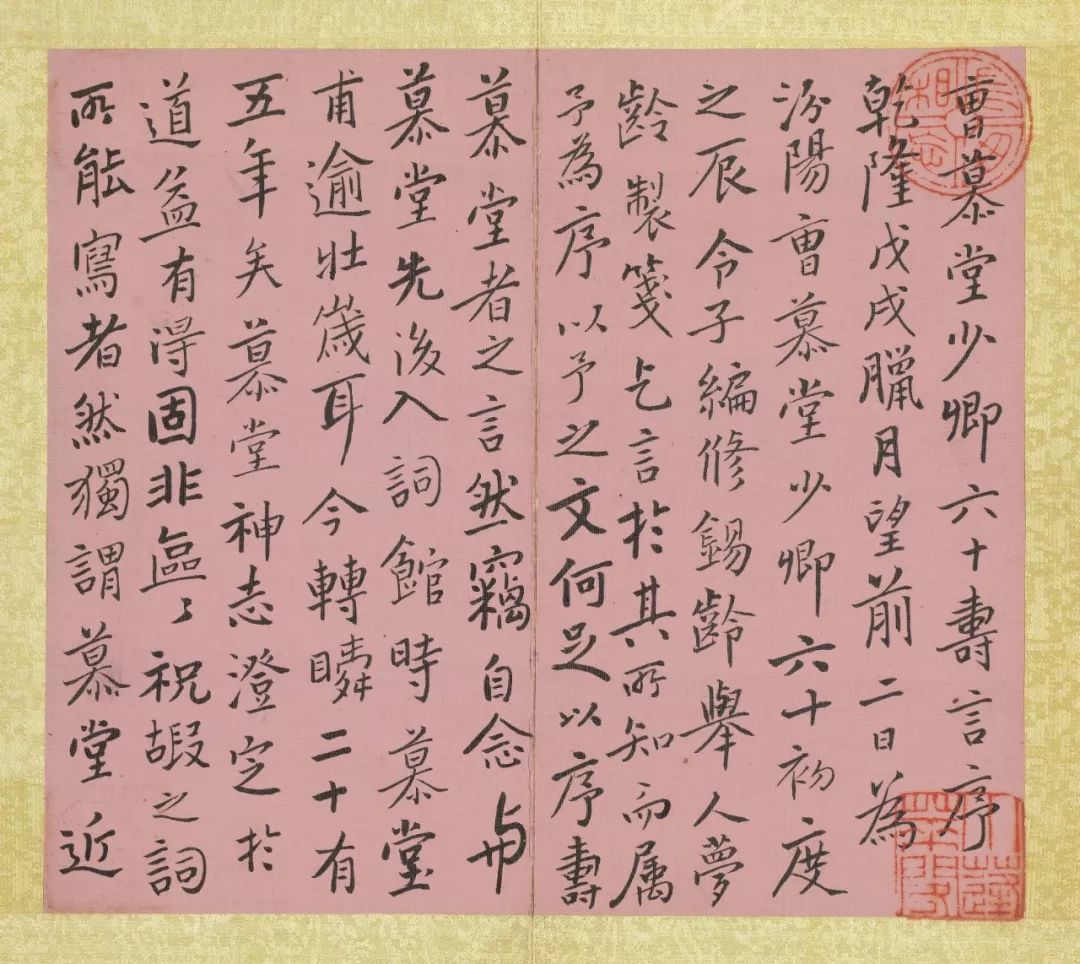 曹慕堂少卿六十壽言序
乾隆戊戌臘月望前二日為
汾陽曹慕堂少卿六十初度
之辰令子編修錫齡舉人夢
齡製箋乞言於其所知而属
予為序以予之文何足以序壽
慕堂者之言然竊自念与
慕堂先後入詞館時慕堂
甫逾壯歲耳今轉瞬二十有
五年矣慕堂神志澄定於
道益有得固非區〻祝嘏之詞
所能寫者然獨謂慕堂近